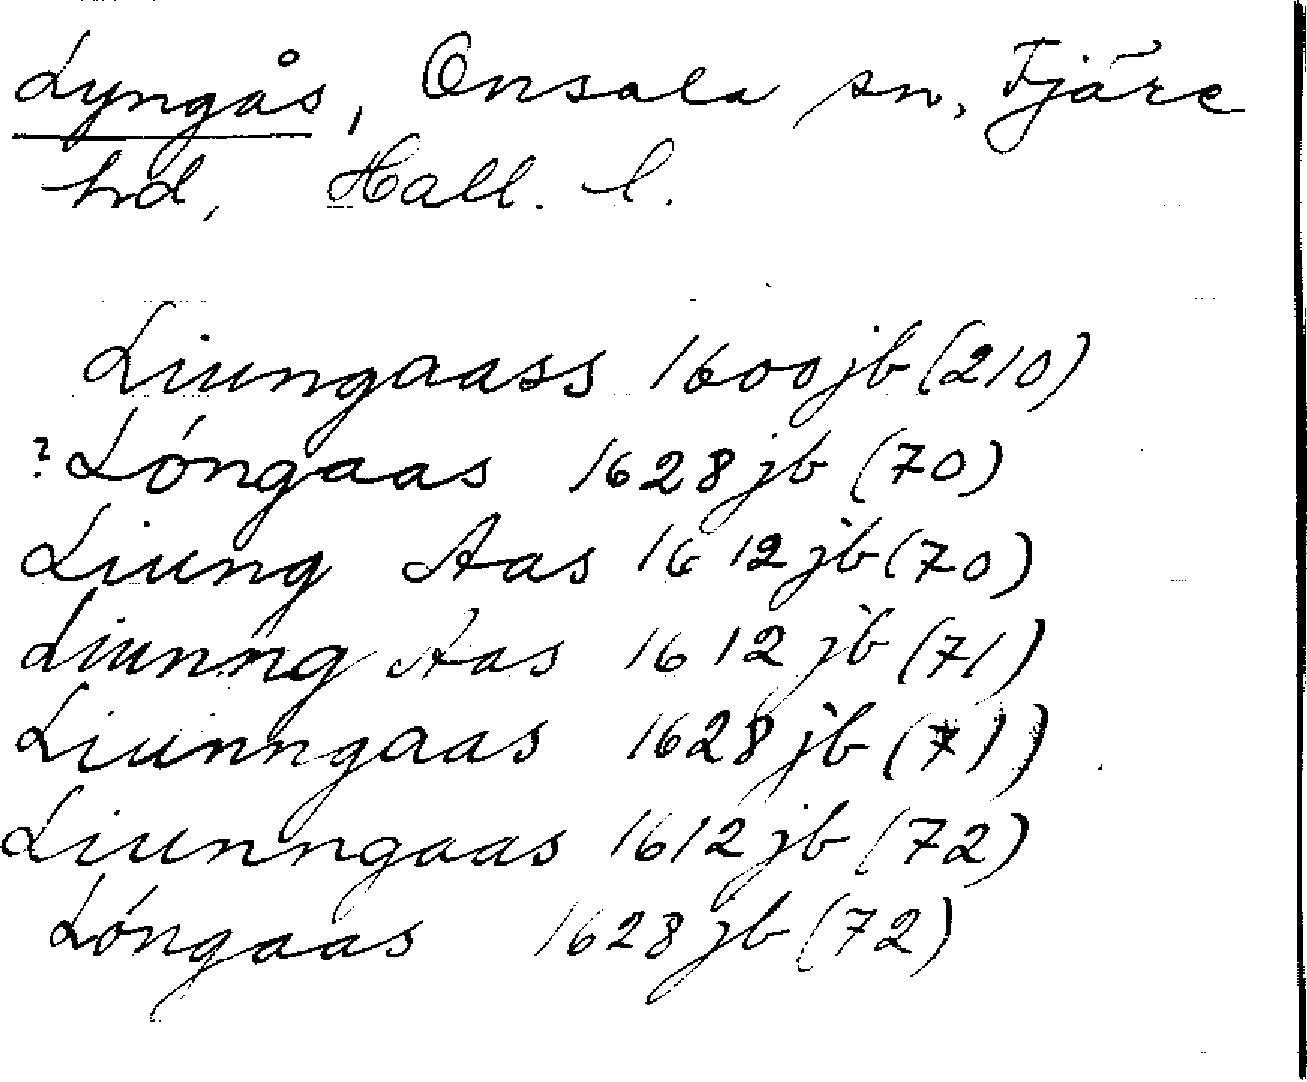 Lyngås, Onsala sn, Fjäre
hd, Hall. l.
Liungaass 1600 jb (210)
? Lóngaas 1628 jb (70)
Liung Aas 1612 jb (70)
Liunng Aas 1612 jb (71)
Liunngaas 1628 jb (71)
Liunngaas 1612 jb (72)
Lóngaas 1628 jb (72)